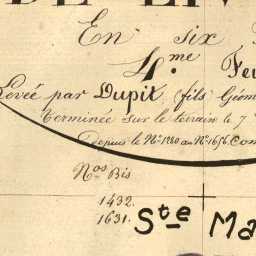 En six
4.me Feu
Levée par Dupit, fils Géom
terminée sur le terrain le 7
Depuis le No. 1280 au No. 1656. Com
Nos Bis
1432.
1631.
Ste Ma